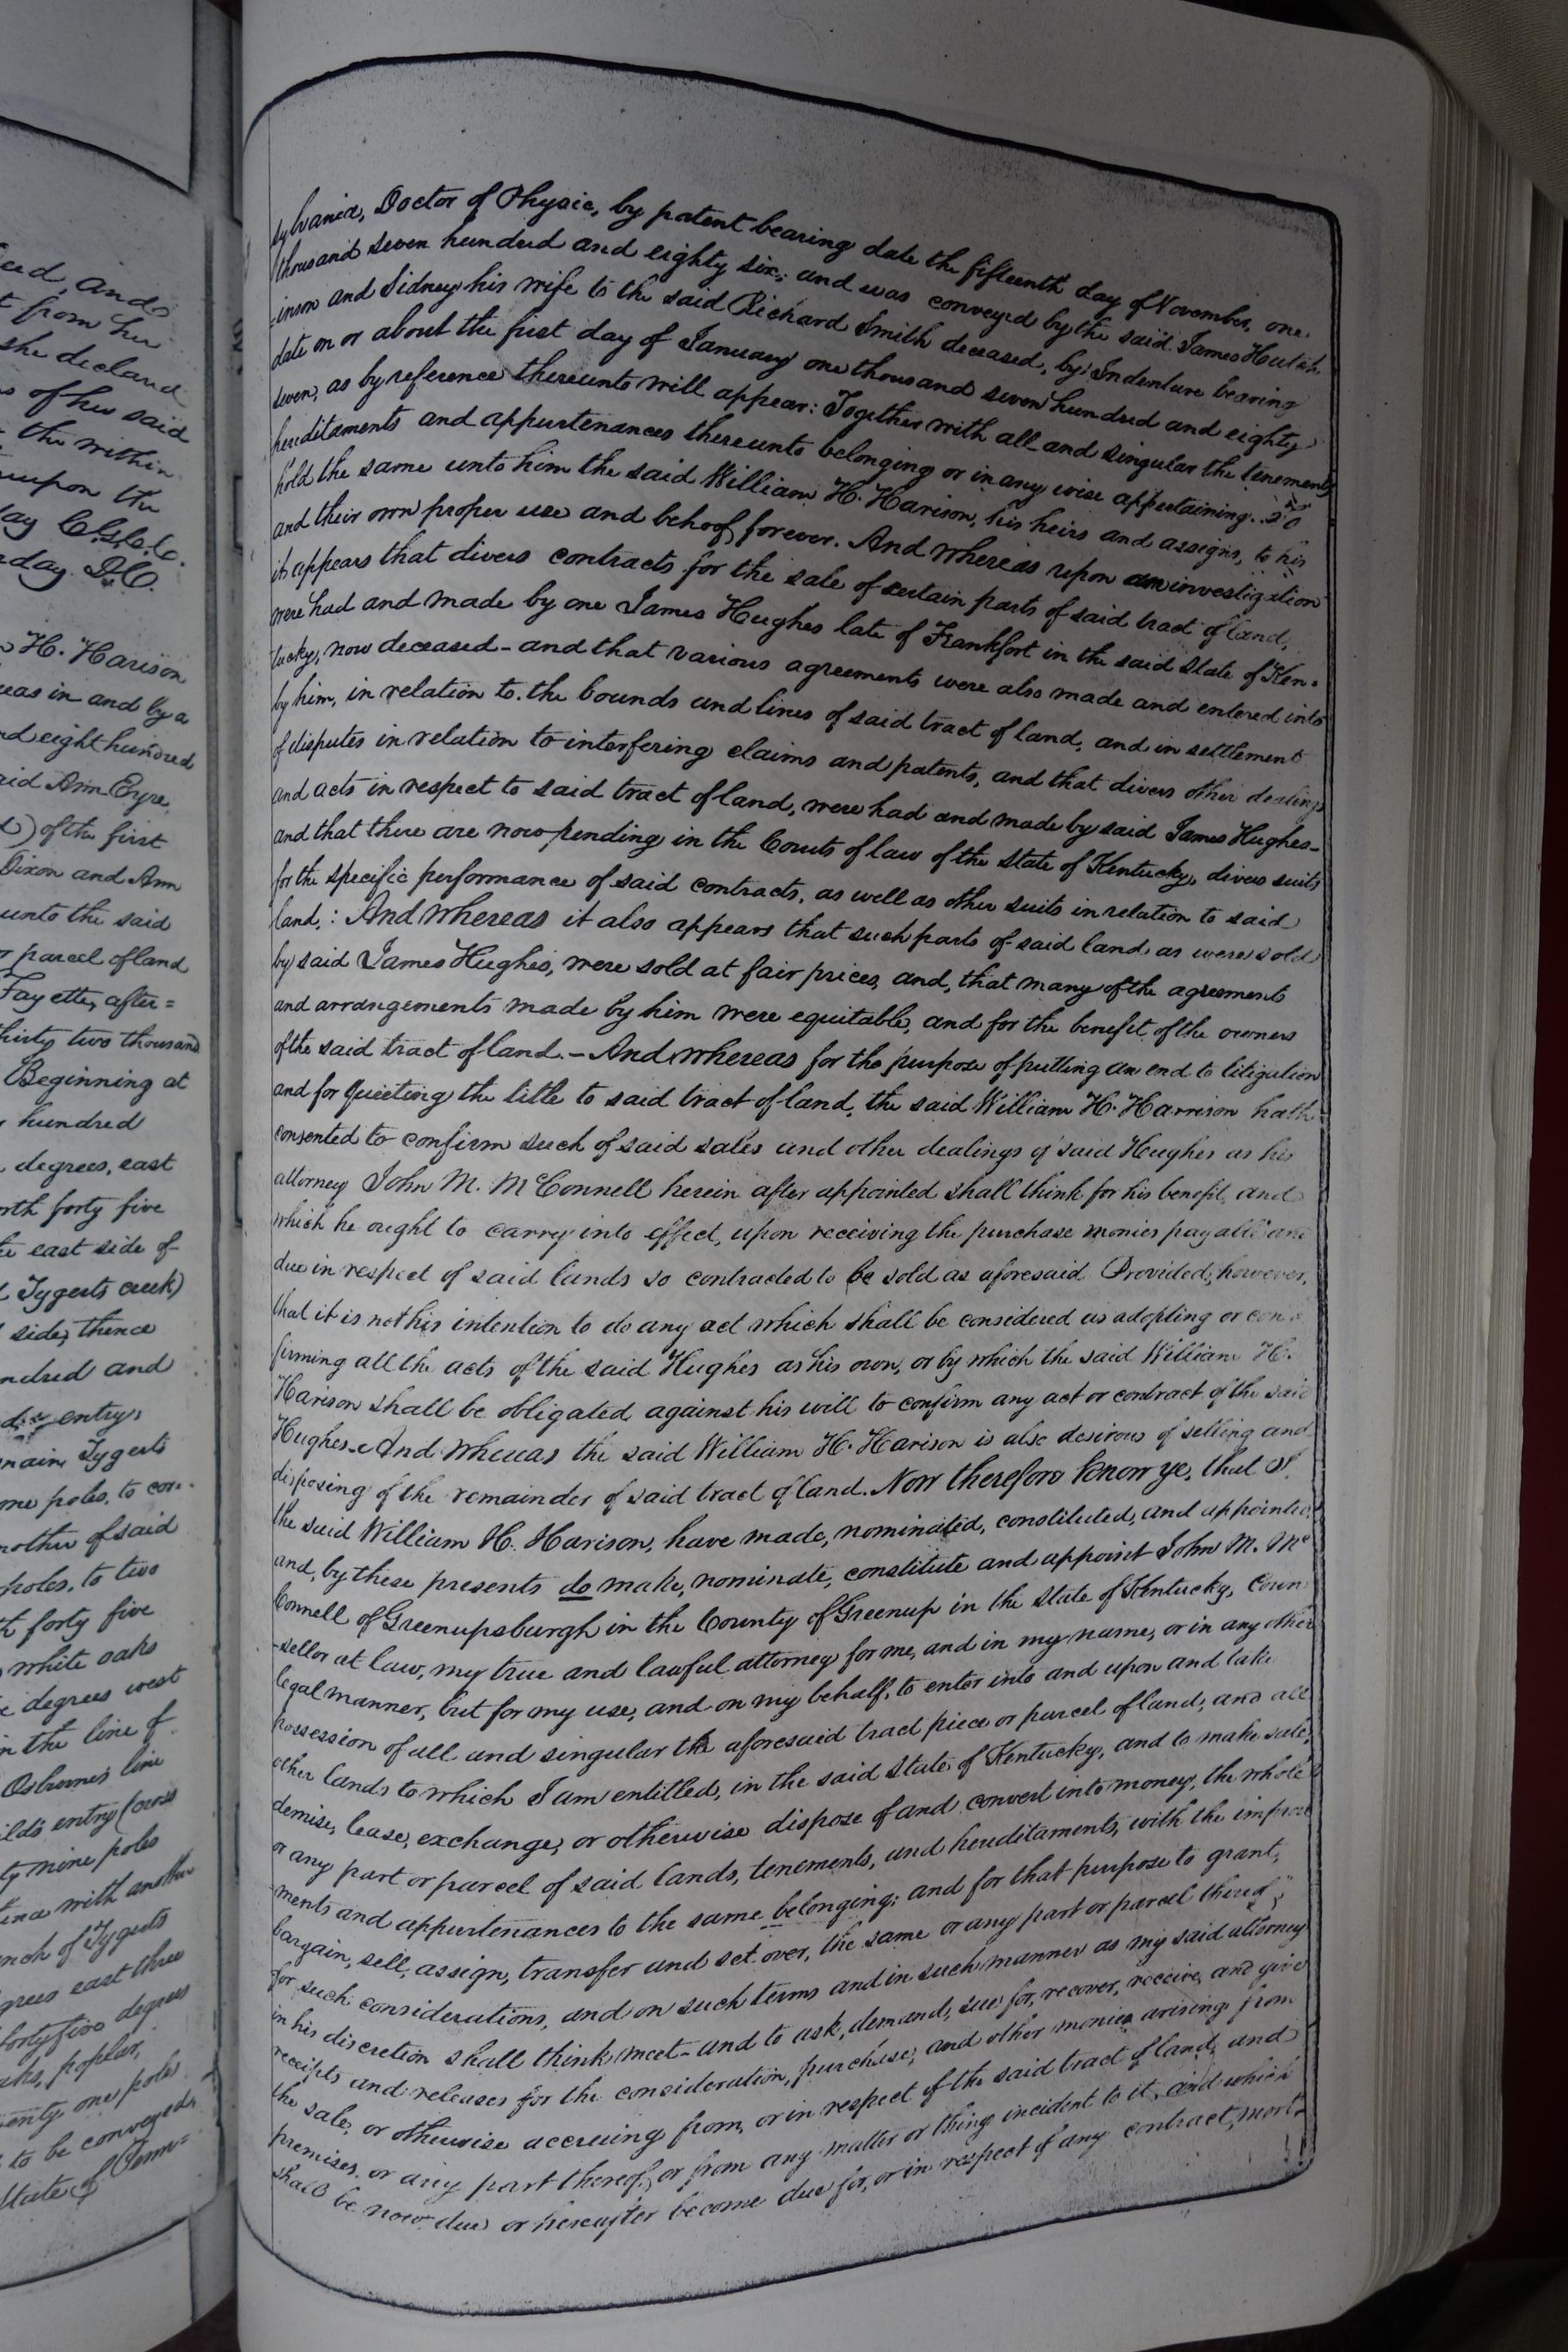 eed, and
t from her
she declared
s of her said
the within
upon the
day C.G.C.C.
day D.C.
H. Harison
eas in and by a
nd eight hundred
aid Ann Eyre,
d) of the first
Dixon and Ann
unto the said
r parcel of land
Fayette, after=
thirty two thousand
Beginning at
hundred
degrees, east
rth forty five
he east side of
Tygerts creek)
side; thence
ndred and
entry,
main Tygerts
me poles, to cor-
nother of said
poles, to two
h forty five
white oaks
e degrees west
n the line of
Osburnes line
ild's entry (cross
ty nine poles
ence with another
nch of Tygerts
grees east three
forty five degrees
aks, poplar,
enty one poles
to be conveyed,
State of Penn=
sylvania, Doctor of Physic, by patent bearing date the fifteenth day of November, one
thousand seven hundred and eighty six; and was conveyed by the said James Hutch
-inson and Sidney his wife to the said Richard Smith deceased, by Indenture bearing
date on or about the first day of January one thousand seven hundred and eighty
seven, as by reference thereunto will appear: Together with all and singular the tenements
hereditaments and appurtenances thereunto belonging or in any wise appertaining. To
hold the same unto him the said William H. Harison, his heirs and assigns, to his
and their own proper use and behoof forever. And whereas upon an investigation
it appears that divers contracts for the sale of certain parts of said tract of land,
were had and made by one James Hughes late of Frankfort in the said State of Ken-
tucky, now deceased - and that various agreements were also made and entered into
by him, in relation to the bounds and lines of said tract of land, and in settlement
of disputes in relation to interfering claims and patents, and that divers other dealings
and acts in respect to said tract of land, were had and made by said James Hughes-
and that there are now pending in the Courts of law of the State of Kentucky, divers suits
for the specific performance of said contracts, as well as other suits in relation to said
land,: And whereas it also appears that such parts of said land as were sold
by said James Hughes, were sold at fair prices, and, that many of the agreements
and arrangements made by him were equitable, and for the benefit of the owners
of the said tract of land. - And whereas for the purpose of putting an end to litigation
and for Quieting the title to said tract of land, the said William H. Harrison hath
consented to confirm such of said sales and other dealings of said Hughes as his
attorney John M. McConnell herein after appointed shall think for his benefit, and
which he ought to carry into effect, upon receiving the purchase monies payable and
due in respect of said lands so contracted to be sold as aforesaid Provided; however,
that it is not his intention to do any act which shall be considered as adopting or con=
firming all the acts of the said Hughes as his own, or by which the said William H.
Harison shall be obligated against his will to confirm any act or contract of the said
Hughes - And whereas the said William H. Harison is also desirous of selling and
disposing of the remainder of said tract of land. Now therefore know ye, that I,
the said William H. Harison, have made, nominated, constituted, and appointed,
and, by these presents do make, nominate, constitute and appoint John M. Mc
Connell of Greenupsburgh in the County of Greenup in the State of Kentucky, Coun
-sellor at law, my true and lawful attorney for me, and in my name, or in any other
legal manner, but for my use, and on my behalf, to enter into and upon and take
possession of all and singular the aforesaid tract piece or parcel of land, and all
other lands to which I am entitled, in the said State of Kentucky, and to make sale,
demise, lease, exchange, or otherwise dispose of and convert into money, the whole
or any part or parcel of said lands, tenements, and hereditaments, with the improve
-ments and appurtenances to the same belonging; and for that purpose to grant,
bargain, sell, assign, transfer and set over, the same or any part or parcel thereof;
for such considerations, and on such terms and in such manner as my said attorney
in his discretion shall think meet - and to ask, demand, sue for, recover, receive, and give
receipts and releases for the consideration, purchase, and other monies arising from
the sale, or otherwise accruing from, or in respect of the said tract of land, and
premises, or any part thereof, or from any matter or thing incident to it, and which
shall be now due or hereafter become due for, or in respect of any contract, mort-